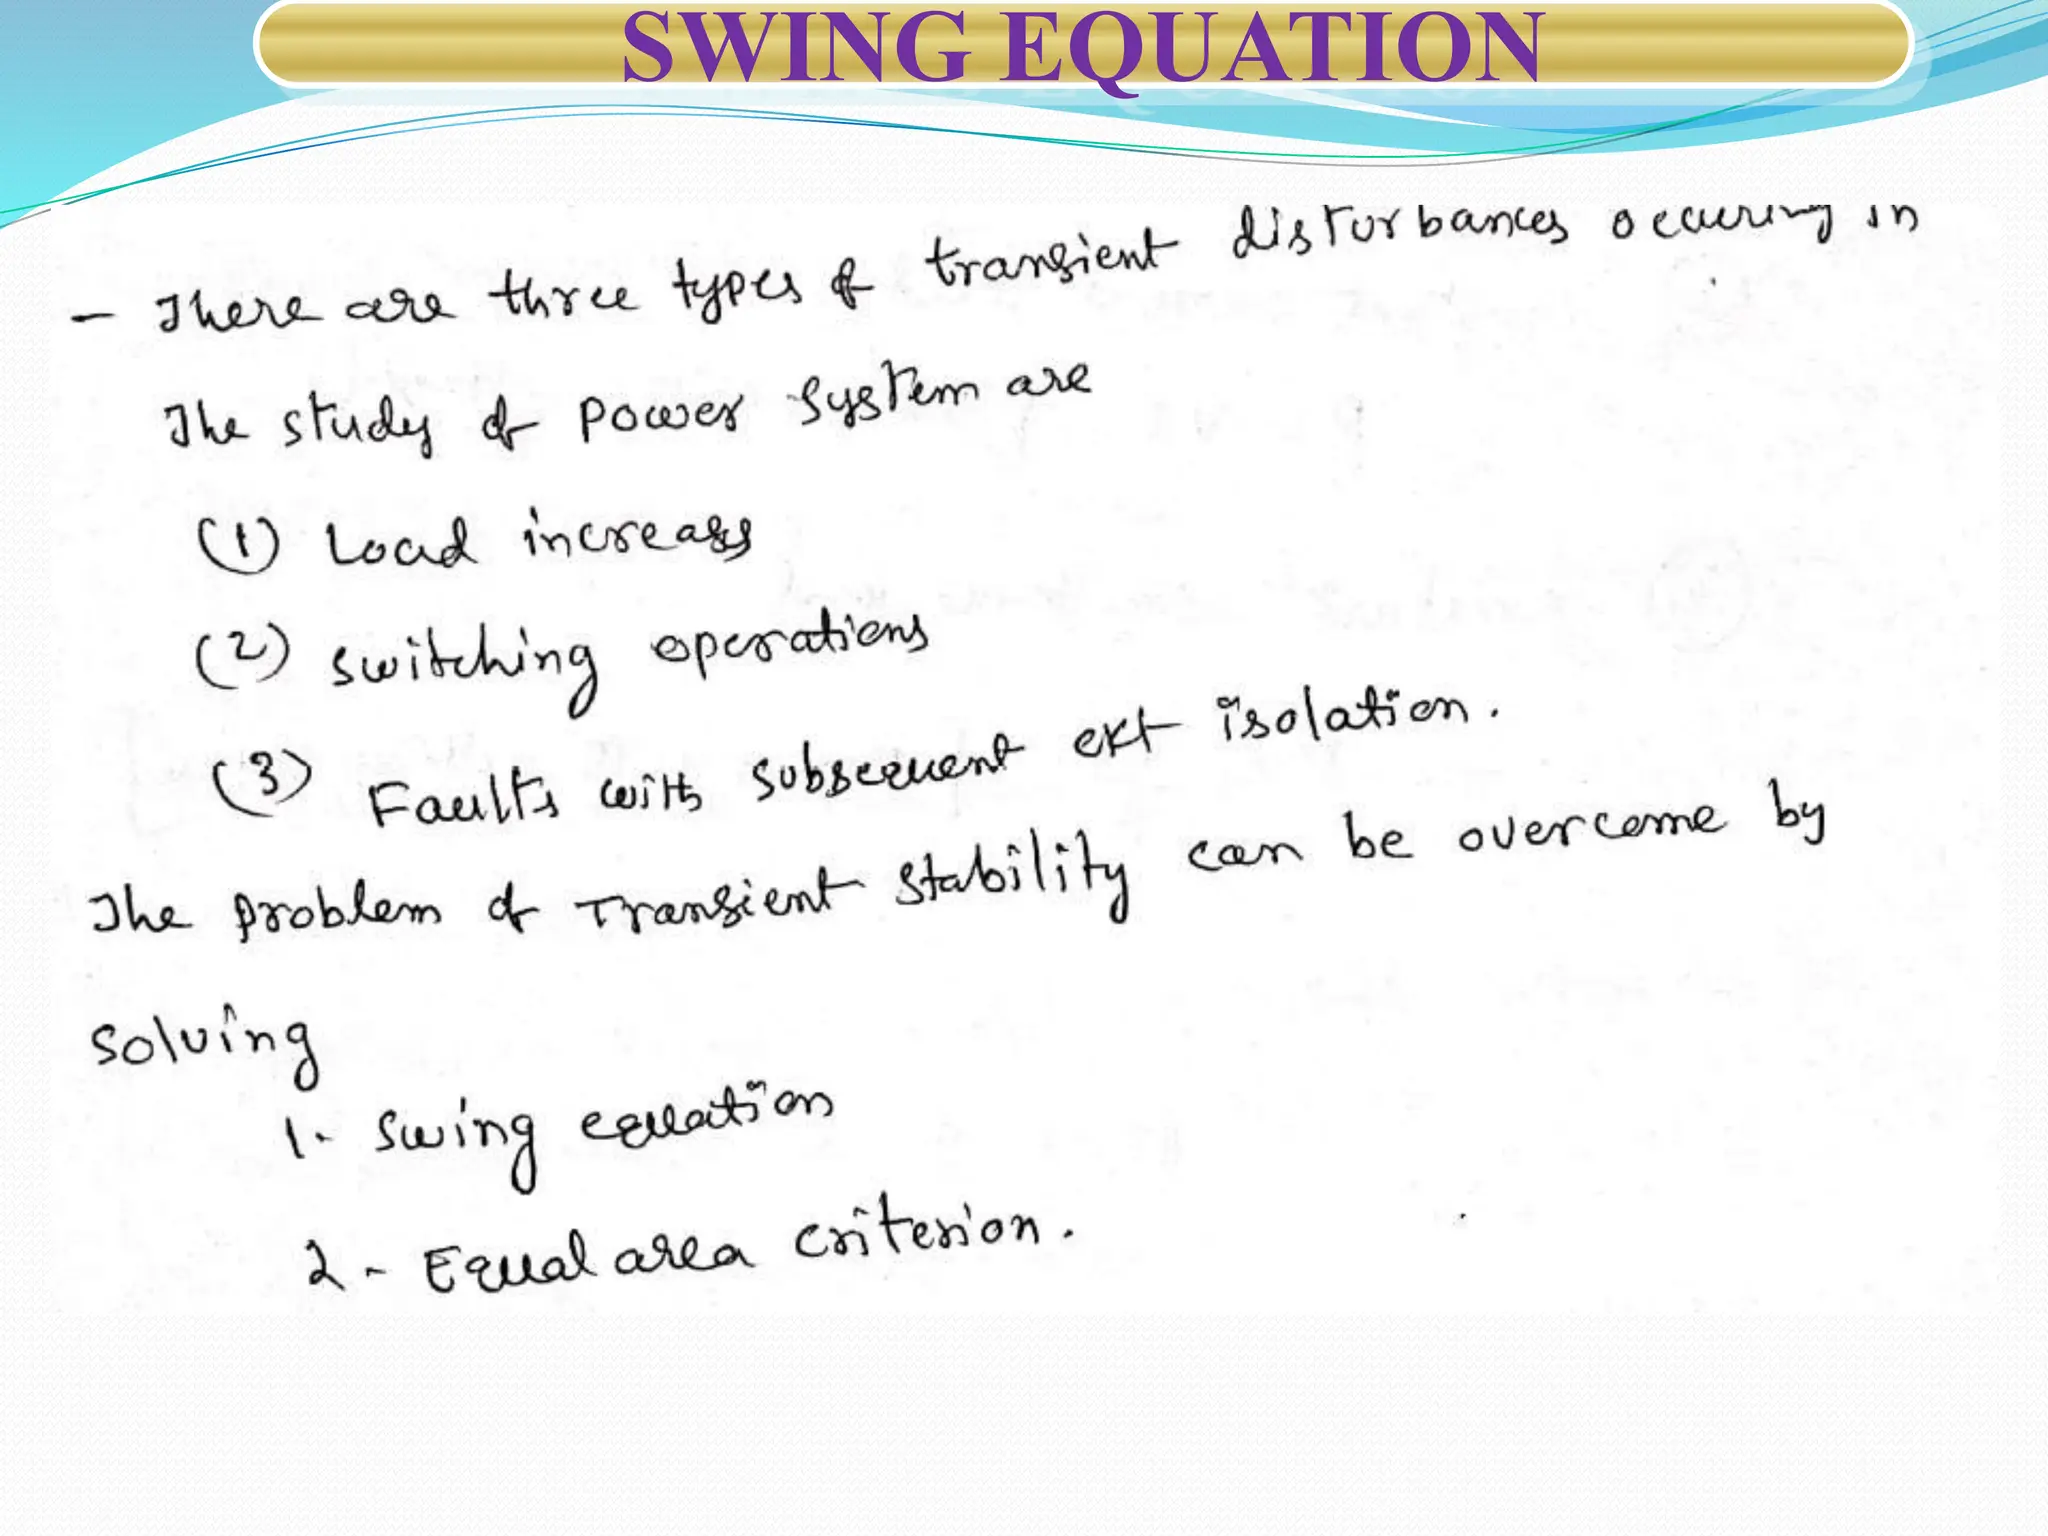 SWING EQUATION
- There are three types of transient disturbances occuring in
The study of power system are
(1) Load increases
(2) switching operations
(3) Faults with subsequent ckt isolation.
The problem of Transient stability can be overcome by
solving
1. swing equation
2 - Equal area criterion.